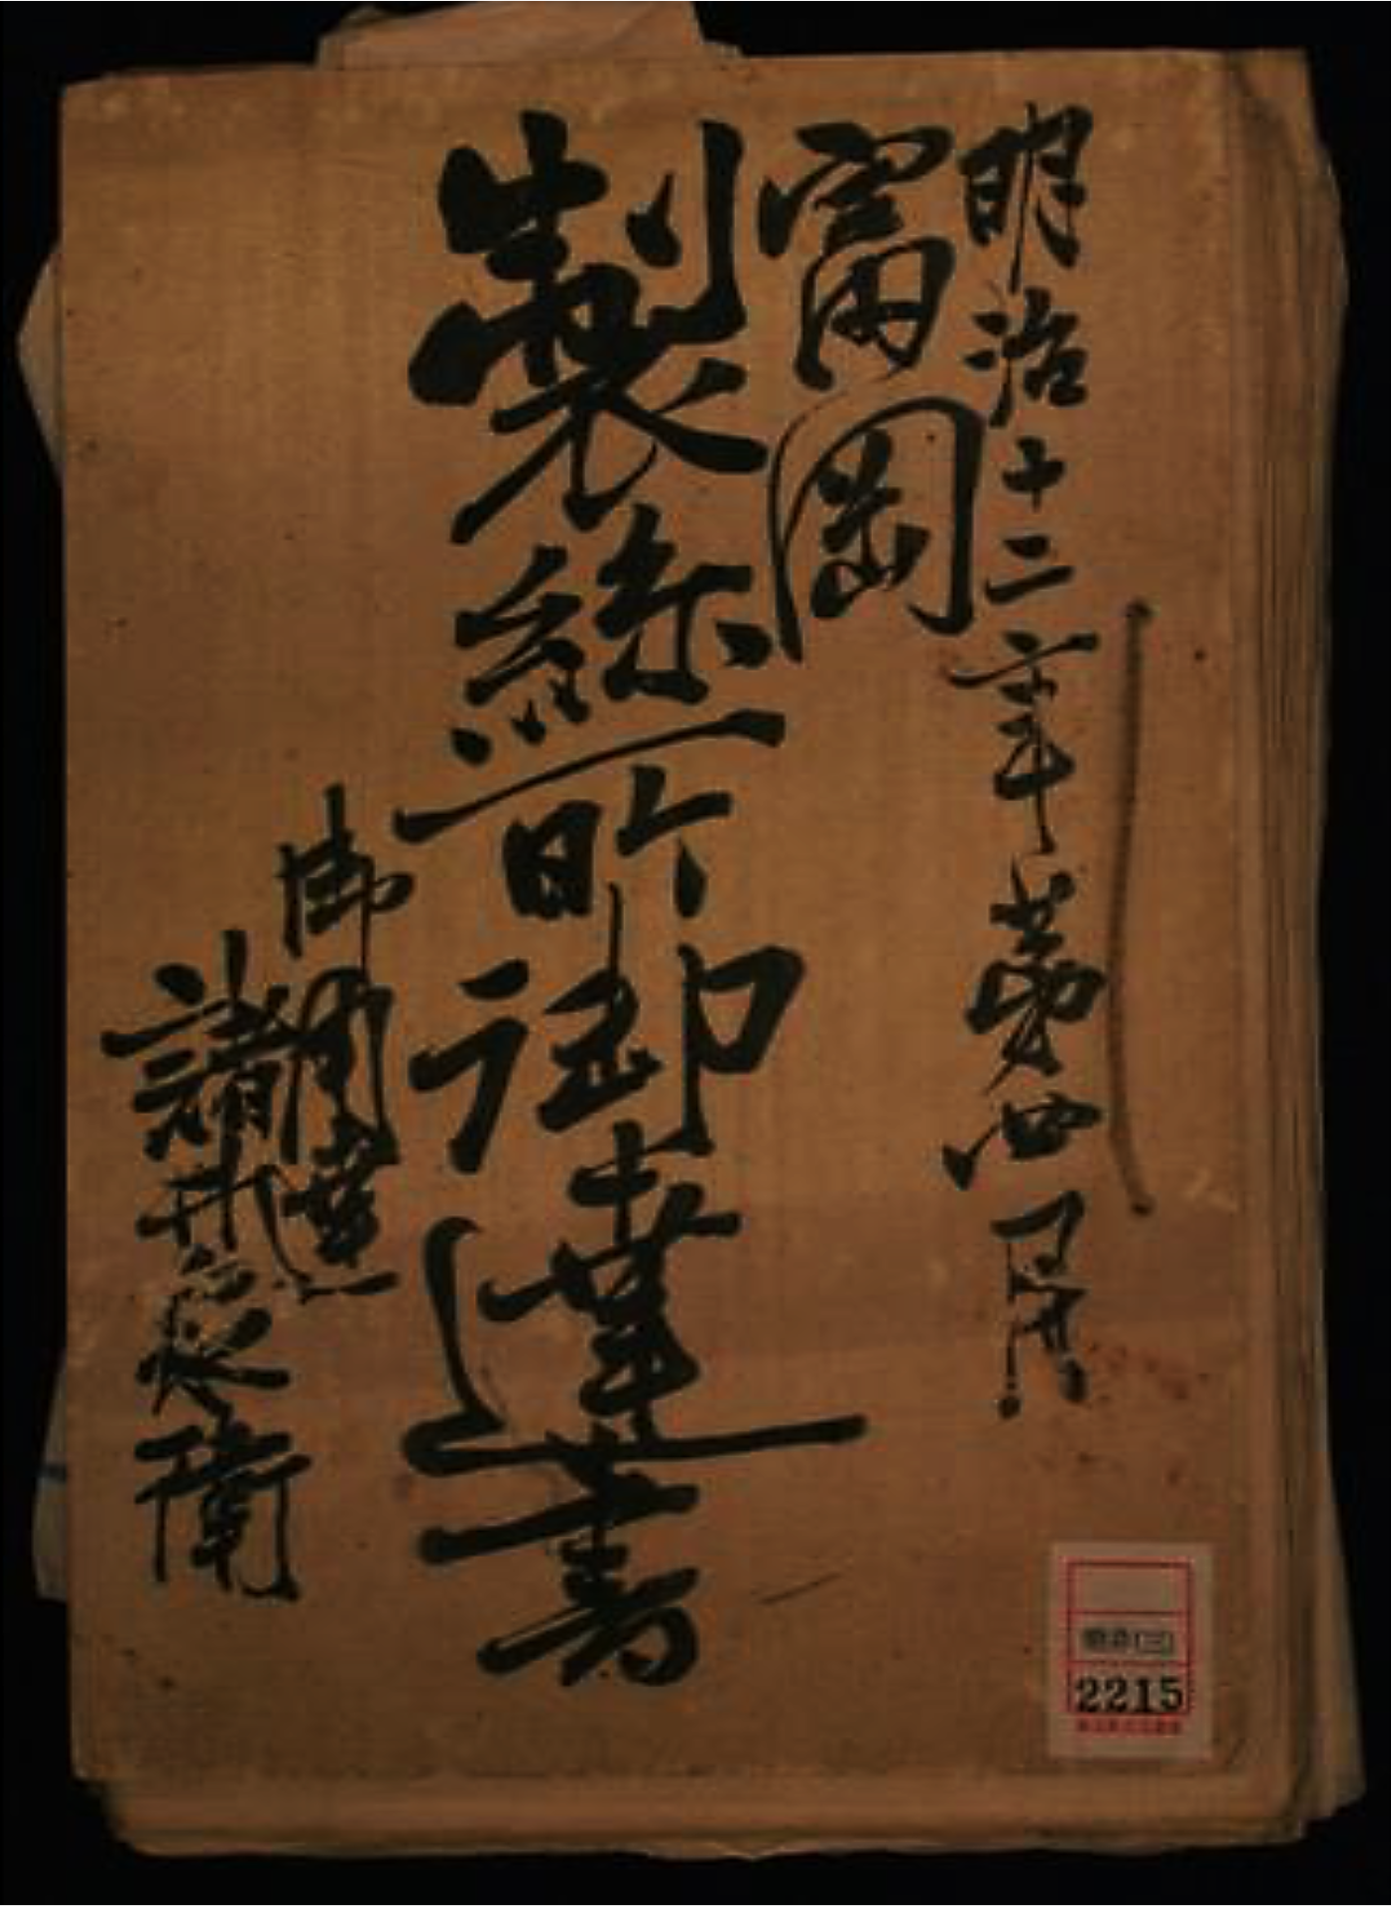 明治十二年第四月
富岡
製絲所御達書
御用達
諸井
衛
2215